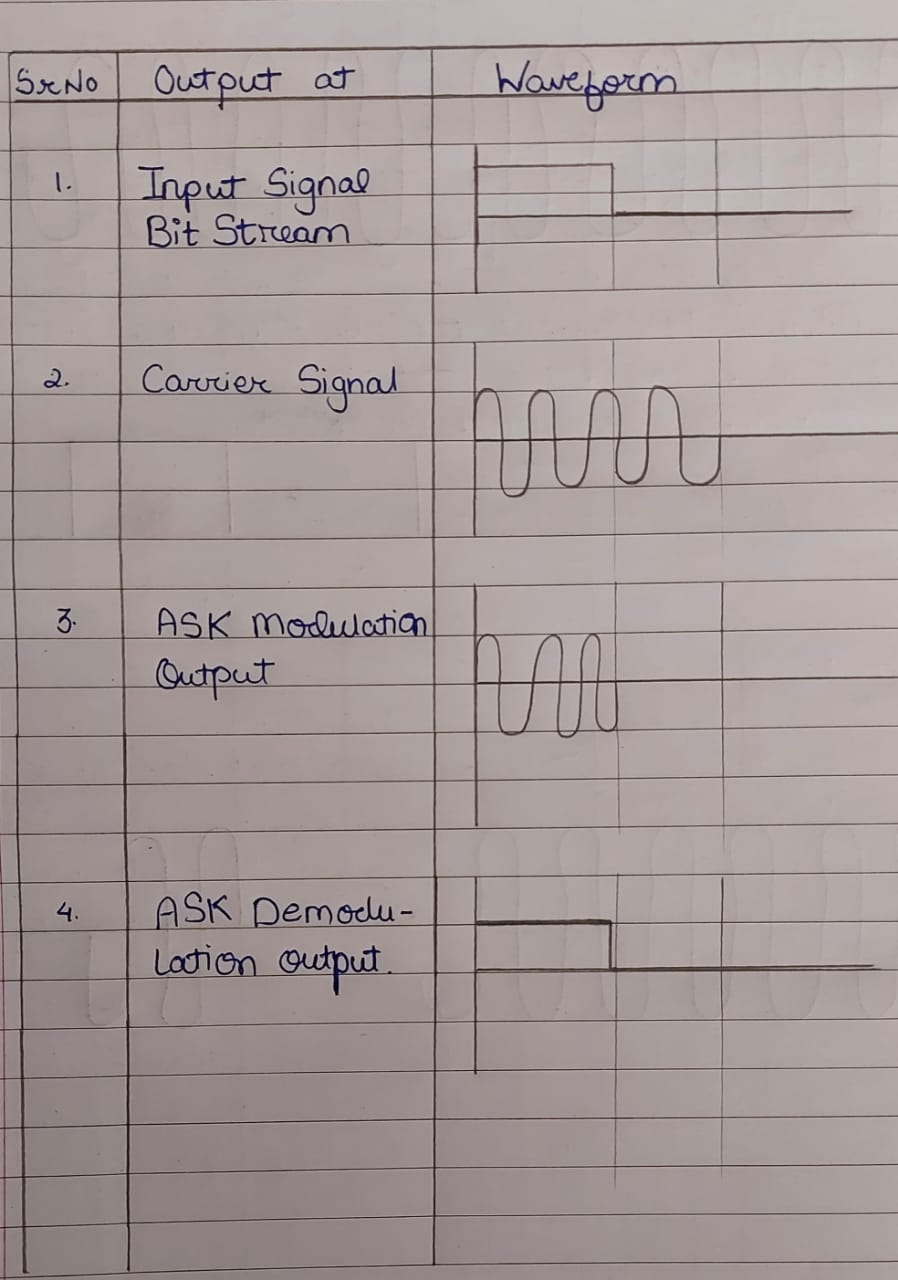 Sr No Output at Waveform
1. Input Signal
Bit Stream
2. Carrier Signal
3. ASK Modulation
Output
4. ASK Demodu-
lation output.